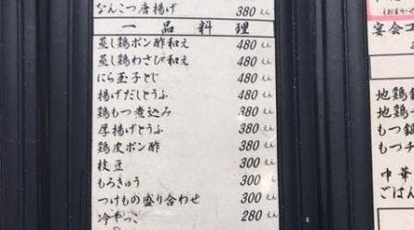 なんこつ唐揚げ 380えん
一品料理
蒸し鶏ポン酢和え 480えん
蒸し鶏わさび和え 480えん
にら玉子とじ 480えん
揚げだしとうふ 480えん
鶏もつ煮込み 380えん
厚揚げとうふ 380えん
鶏皮ポン酢 380えん
枝豆 300えん
もろきゅう 300えん
つけもの盛り合わせ 300えん
冷やっこ 280えん
宴会コ
地鶏
地鶏
もつ
もつチ
中華
ごはん